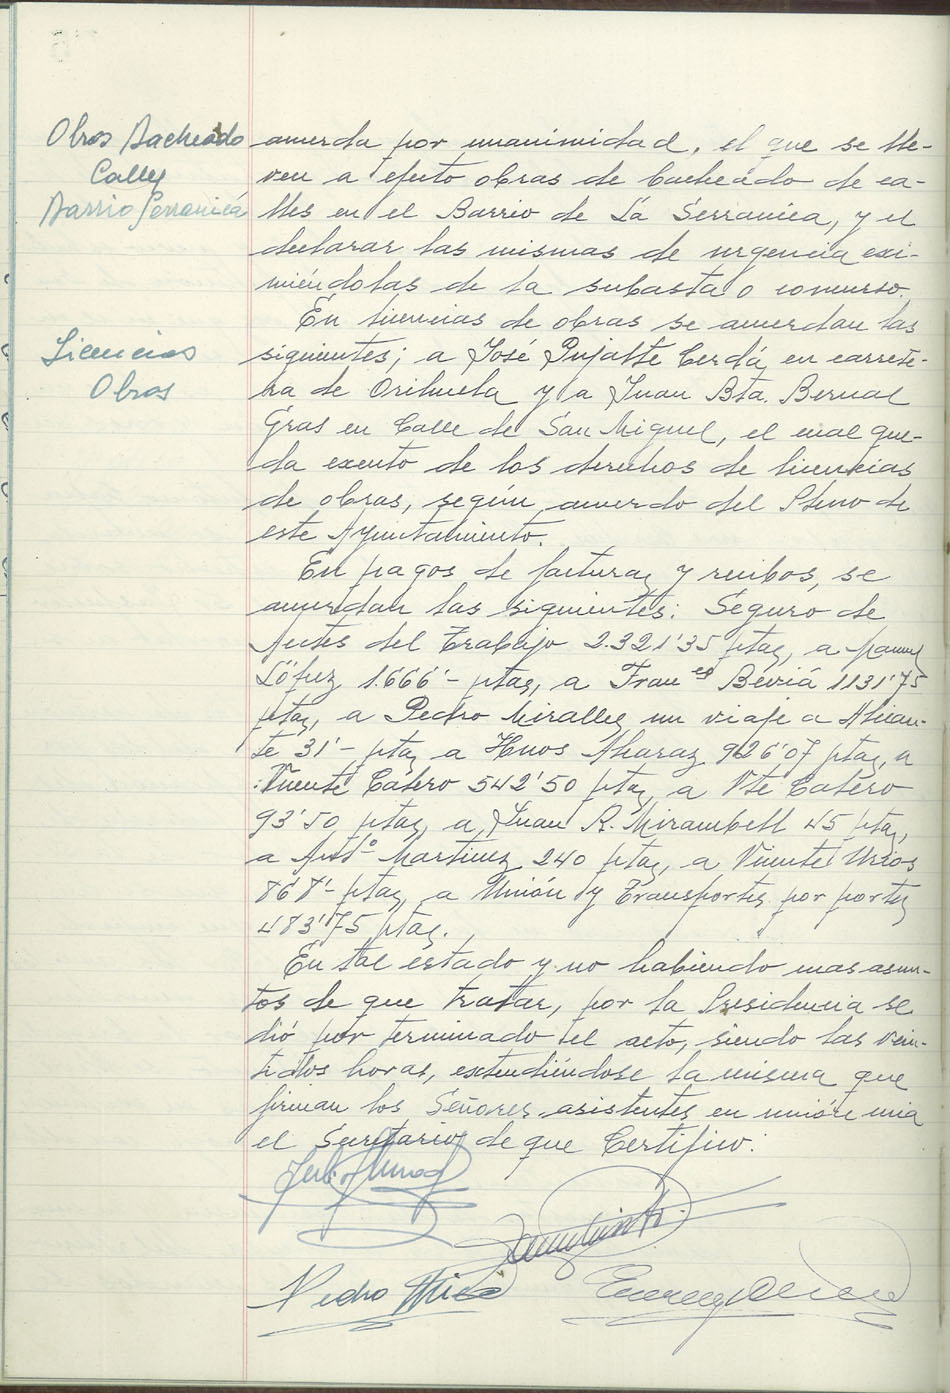 Obras Bacheado
Calles
Barrio Serranica
acuerda por unanimidad, el que se lle-
ven a efecto obras de bacheado de ca-
lles en el Barrio de La Serranica, y el
declarar las mismas de urgencia exi-
miéndolas de la subasta o concurso.
En licencias de obras se acuerdan las
Licencias
Obras
siguientes; a José Pujalte Cerdá en carrete-
ra de Orihuela y a Juan Bta. Bernal
Gras en Calle de San Miguel, el cual que-
da exento de los derechos de licencias
de obras, según acuerdo del Pleno de
este Ayuntamiento.
En pagos de facturas y recibos, se
acuerdan las siguientes: Seguro de
Actes del Trabajo 2.321'35 ptas, a Manuel
López 1.666'- ptas, a Franco Beviá 1131'75
ptas, a Pedro Miralles un viaje a Alican-
te 31'- ptas a Hnos Alcaraz 926'07 ptas, a
Vicente Calero 542'50 ptas a Vte Calero
93'50 ptas, a Juan R. Mirambell 45 ptas,
a Antº Martinez 240 ptas, a Vicente Urios
868'- ptas, a Unión y Transportes por portes
483'75 ptas.
En tal estado y no habiendo mas asun-
tos de que tratar, por la Presidencia se
dió por terminado el acto, siendo las vein-
tidos horas, extendiéndose la misma que
firman los Señores asistentes en unión e mia
el Secretario de que Certifico:
Pedro